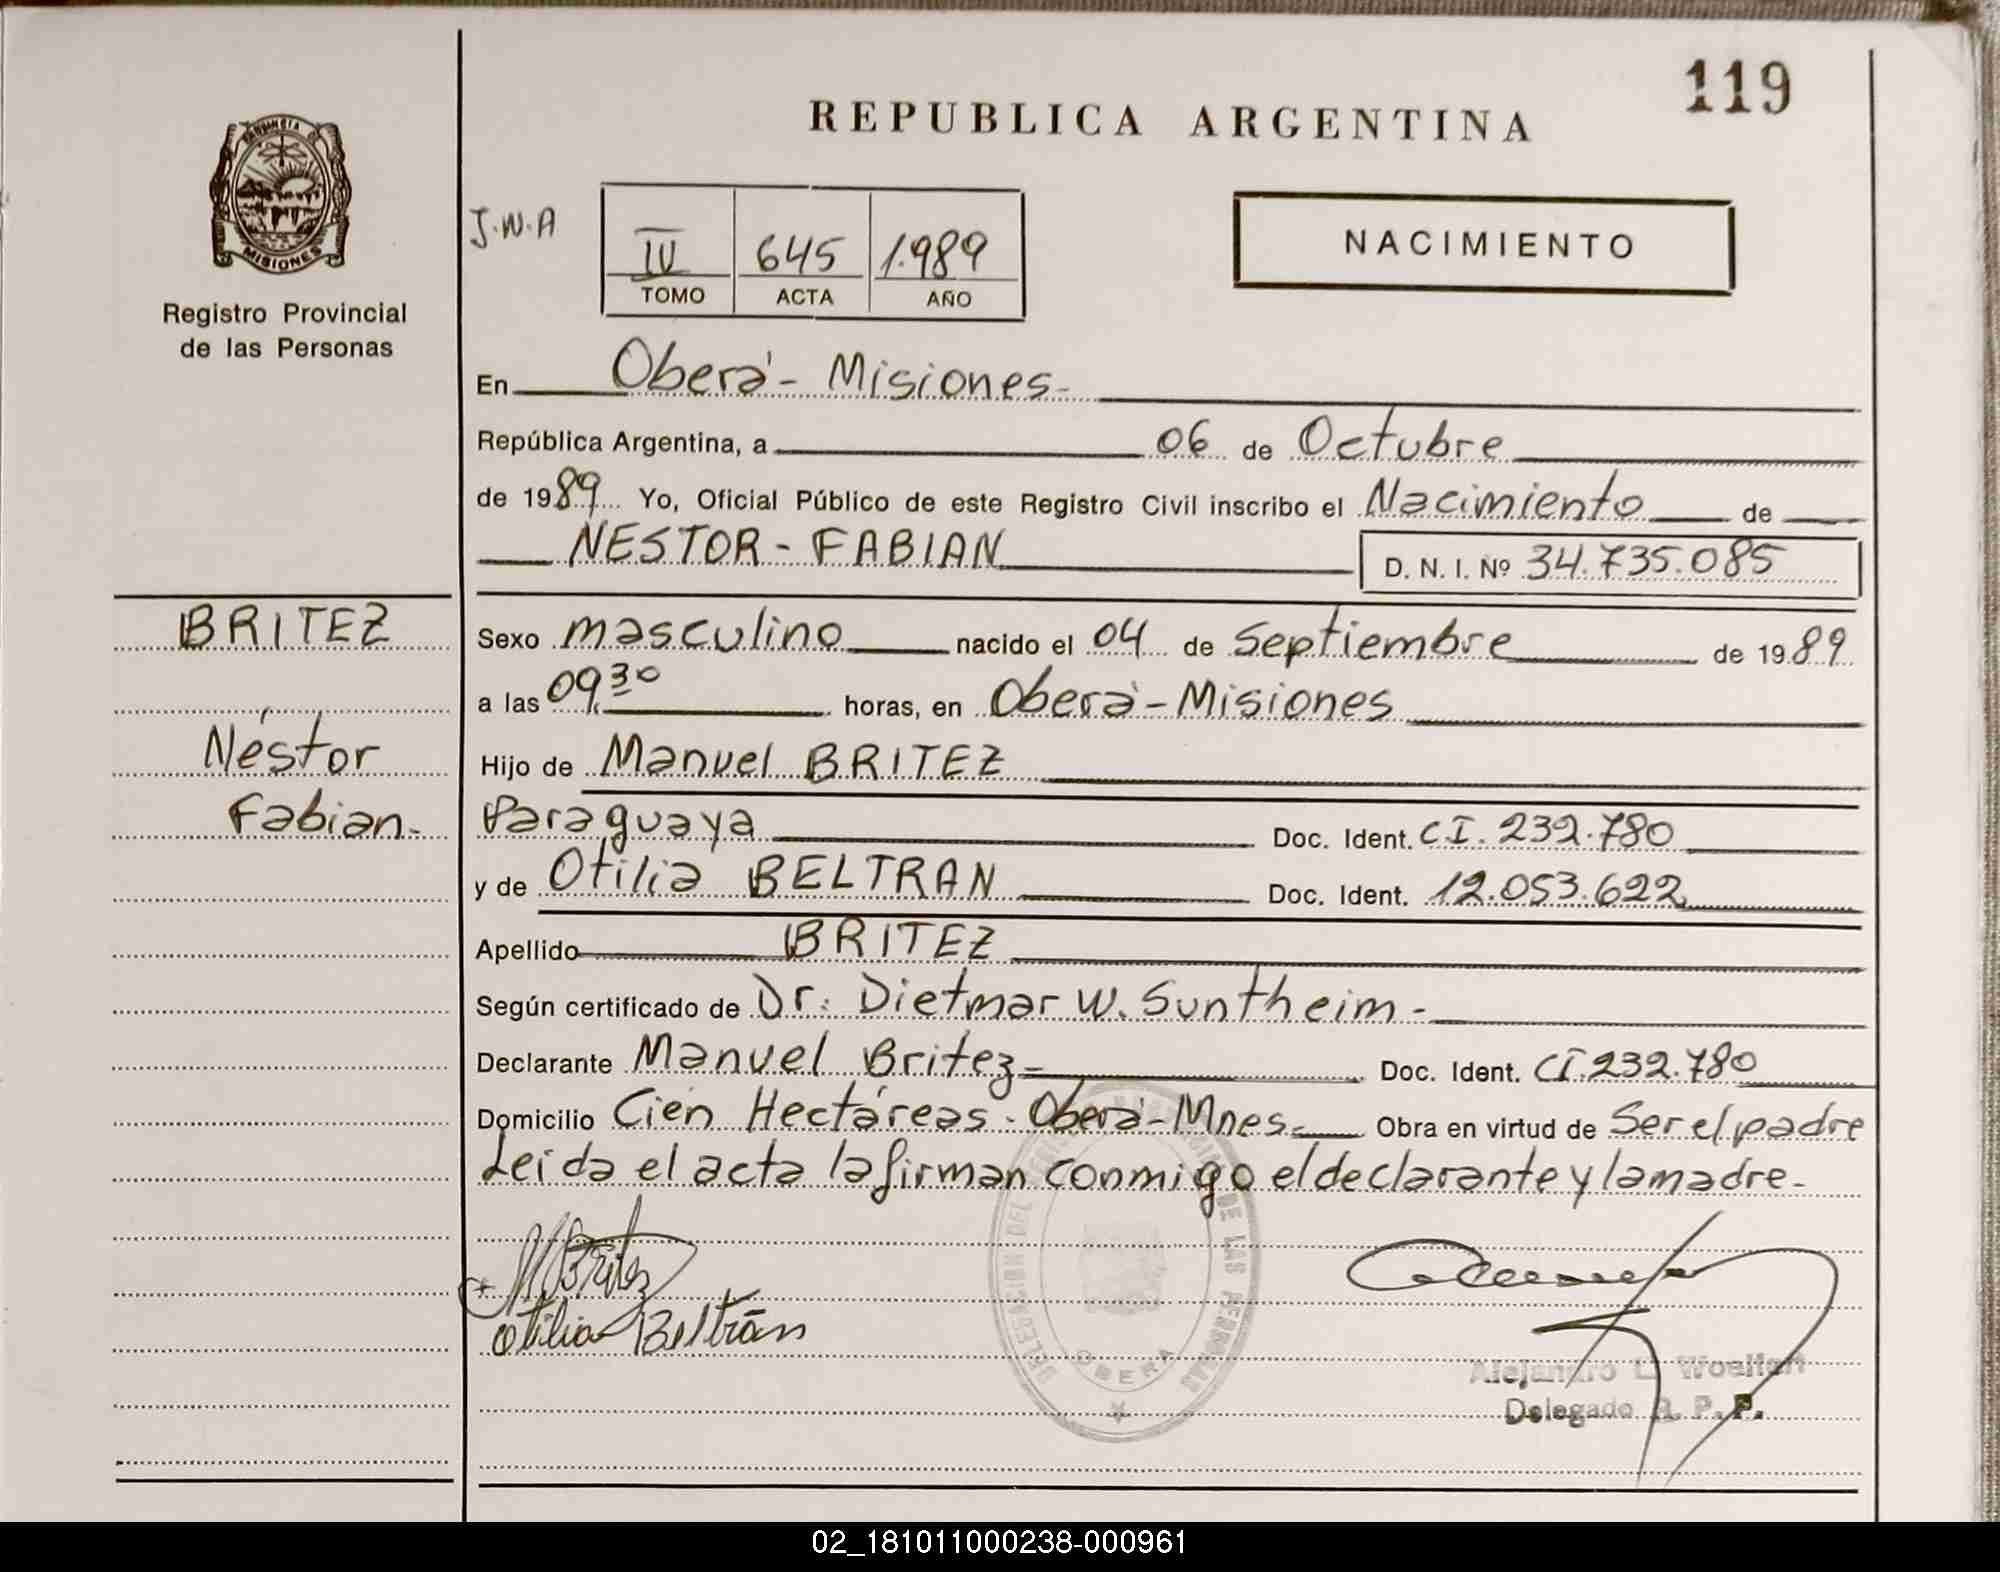 119
REPUBLICA ARGENTINA
PROVINCIA DE
MISIONES
Registro Provincial
de las Personas
J.W.A
IV 645 1.989
TOMO ACTA AÑO
NACIMIENTO
En Oberá - Misiones -
República Argentina, a 06 de Octubre
de 1989 Yo, Oficial Público de este Registro Civil inscribo el Nacimiento de
NESTOR - FABIAN D. N. I. Nº 34.735.085
BRITEZ
Néstor
Fabian -
Sexo masculino nacido el 04 de Septiembre de 1989
a las 09,30 horas, en Oberá - Misiones
Hijo de Manuel BRITEZ
Paraguaya Doc. Ident. C.I. 232.780
y de Otilia BELTRAN Doc. Ident. 12.053.622
Apellido BRITEZ
Según certificado de Dr. Dietmar W. Suntheim -
Declarante Manuel Britez - Doc. Ident. CI. 232.780
Domicilio Cien Hectáreas - Oberá - Mnes - Obra en virtud de Ser el padre
Leida el acta la firman conmigo el declarante y la madre -
M Britez
Otilia Beltrán
DELEGACION DEL DE LAS PERSONAS
OBERA
Alejandro L.
Delegado R. P. P.
02_181011000238-000961